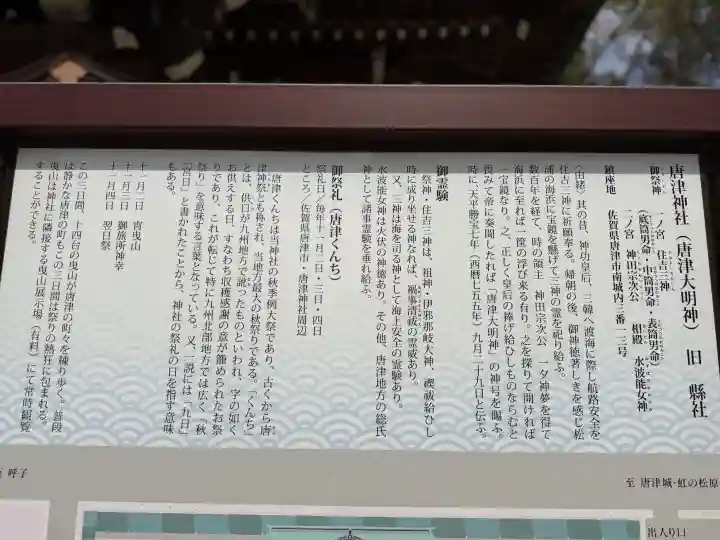 唐津神社(唐津大明神) 旧 縣社
御祭神 一ノ宮 住吉三神
(底筒男命・中筒男命・表筒男命)
二ノ宮 神田宗次公 相殿 水波能女神
鎮座地 佐賀県唐津市南城内三番一三号
〈由緒〉其の昔、神功皇后、三韓へ渡海に際し航路安全を
住吉三神に祈願奉る。帰朝の後、御神徳著しきを感じ松
浦の海浜に宝鏡を懸けて三神の霊を祀り給ふ。
数百年を経て、時の領主 神田宗次公 一夕神夢を得て
海浜に至れば一筐の浮び来る有り。之を探りて開ければ
一宝鏡なり。之、正しく皇后の捧げ給ひしものならむと
畏みて帝に奏聞したれば「唐津大明神」の神号を賜ふ。
時に「天平勝宝七年(西暦七五五年)九月二十九日と伝ふ。
御霊験
祭神・住吉三神は、祖神・伊邪那岐大神、禊祓給ひし
時に成り坐せる神なれば、禍事清祓の霊威あり。
又、三神は海を司る神として海上安全の霊験あり。
水波能女神は火伏の神徳あり。その他、唐津地方の総氏
神として諸事霊験を垂れ給ふ。
御祭礼(唐津くんち)
祭礼日/毎年十一月二日・三日・四日
ところ/佐賀県唐津市・唐津神社周辺
唐津くんちは当神社の秋季例大祭であり、古くから唐
津神祭とも称され、当地方最大の秋祭りである。「くんち」
とは、供日が九州地方で訛ったものといわれ、字の如く
お供えする日、すなわち収穫感謝の意が籠められたお祭
りであり、これが転じて特に九州北部地方では広く「秋
祭り」を意味する言葉となっている。又、一説には「九日」
「宮日」と書かれたことから、神社の祭礼の日を指す意味
もある。
十一月二日 宵曳山
十一月三日 御旅所神幸
十一月四日 翌日祭
この三日間、十四台の曳山が唐津の町々を練り歩く。普段
は静かな唐津の町もこの三日間は祭りの熱狂に包まれる。
曳山は神社に隣接する曳山展示場(有料)にて常時観覧
することができる。
至 呼子
至 唐津城・虹の松原
出入り口